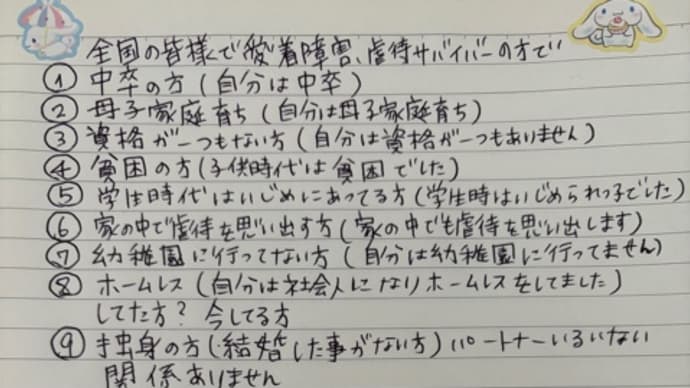 全国の皆様で愛着障害、虐待サバイバーの方で
① 中卒の方(自分は中卒)
② 母子家庭育ち(自分は母子家庭育ち)
③ 資格が一つもない方(自分は資格が一つもありません)
④ 貧困の方(子供時代は貧困でした)
⑤ 学生時代はいじめにあってる方(学生時はいじめられっ子でした)
⑥ 家の中で虐待を思い出す方(家の中でも虐待を思い出します)
⑦ 幼稚園に行ってない方(自分は幼稚園に行ってません)
⑧ ホームレス(自分は社会人になりホームレスをしてました)
してた方?今してる方
⑨ 独身の方(結婚した事がない方)パートナーいるいない
関係ありません